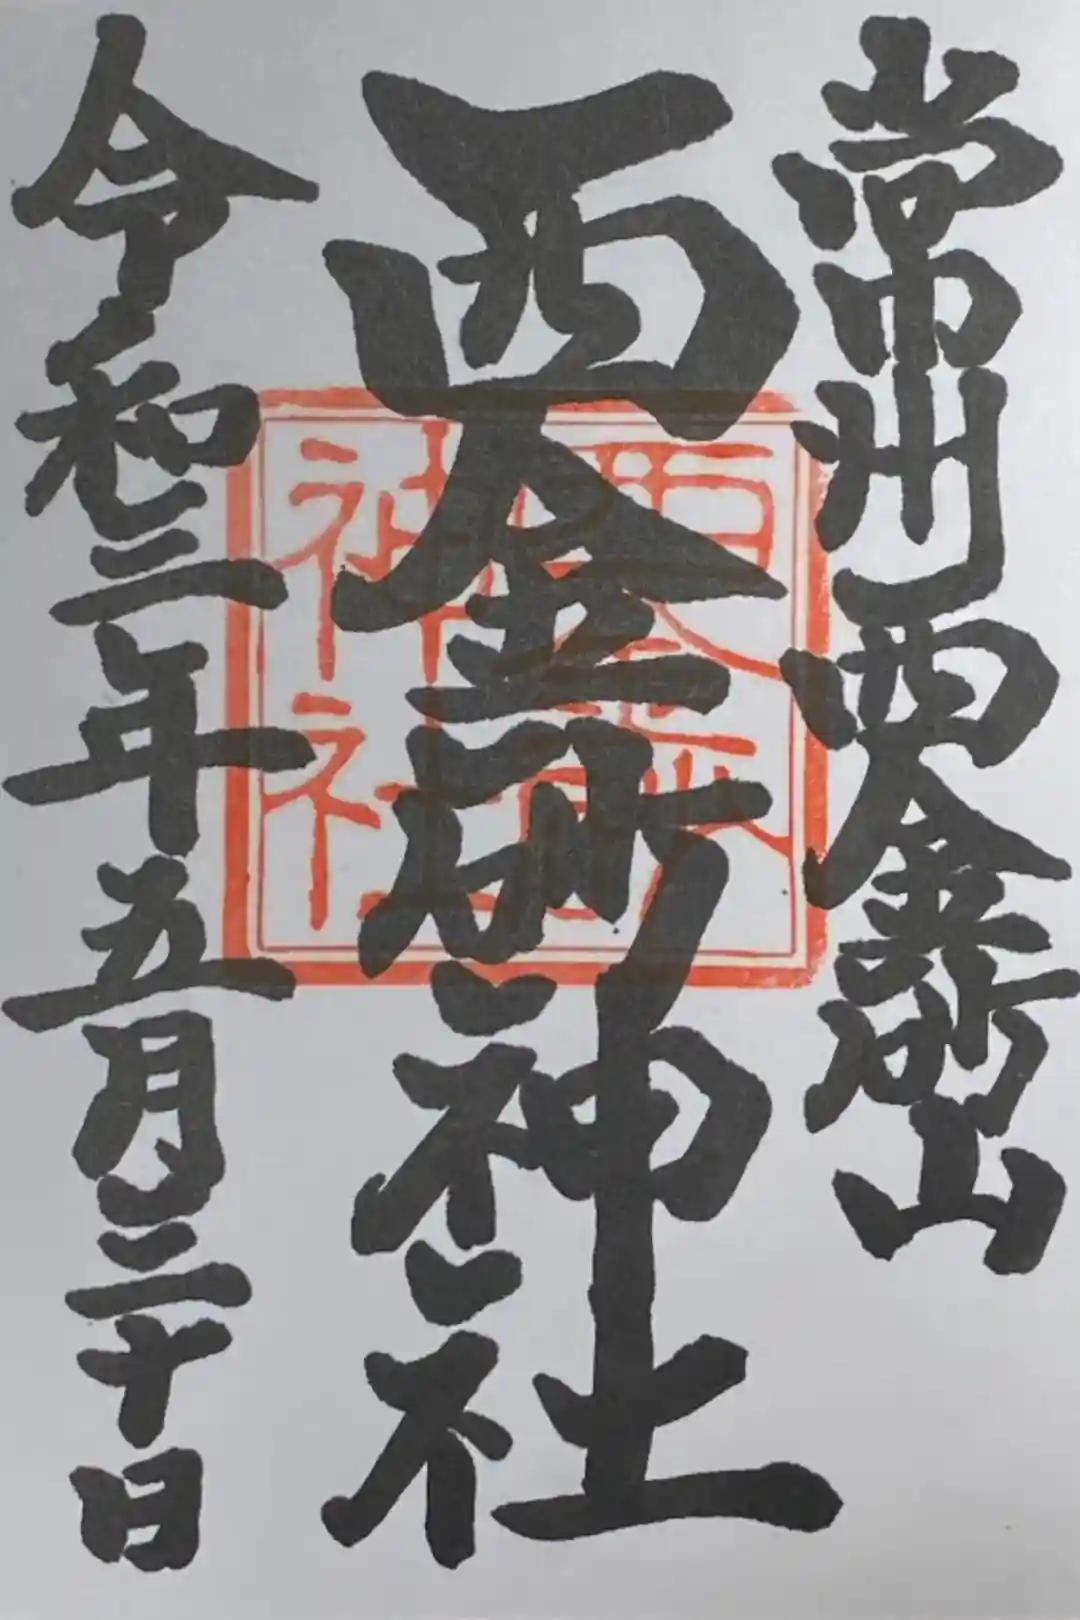 常州西金砂山
西金砂神社
令和三年五月三十日
西金砂
神社